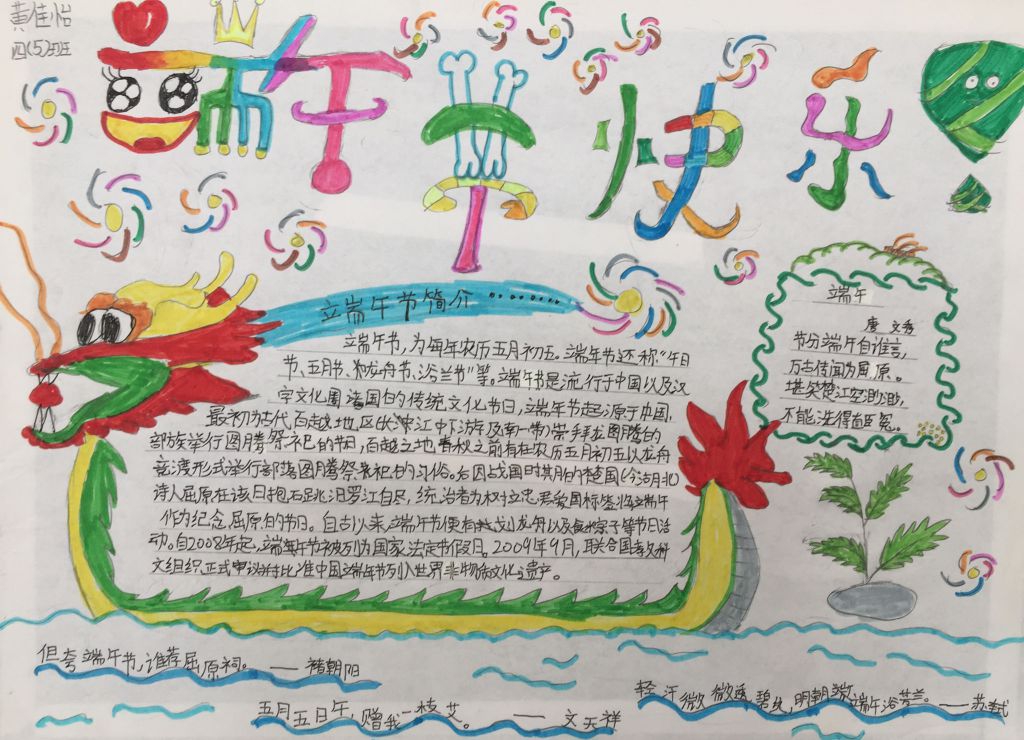 黄佳怡
四(5)班
端午节快乐
端午节简介………
端午节,为每年农历五月初五。端午节还称“午日
节、五月节、龙舟节、浴兰节”等。端午节是流行于中国以及汉
字文化圈诸国的传统文化节日,端午节起源于中国,
最初为古代百越地区(长江中下游及南一带)崇拜龙图腾的
部族举行图腾祭祀的节日,百越之地春秋之前有在农历五月初五以龙舟
竞渡形式举行部落图腾祭祀的习俗。后因战国时期的楚国(今湖北)
诗人屈原在该日抱石跳汨罗江自尽,统治者为树立忠君爱国标签将端午
作为纪念屈原的节日。自古以来端午节便有划龙舟以及食粽子等节日活
动。自2008年起,端午节被列为国家法定节假日。2009年9月,联合国教科
文组织正式审议并批准中国端午节列入世界非物质文化遗产。
端午
唐 文秀
节分端午自谁言,
万古传闻为屈原。
堪笑楚江空渺渺,
不能洗得直臣冤。
但夸端午节,谁荐屈原祠。——褚朝阳
五月五日午,赠我一枝艾。——文天祥
轻汗微微透碧纨,明朝端午浴芳兰。——苏轼